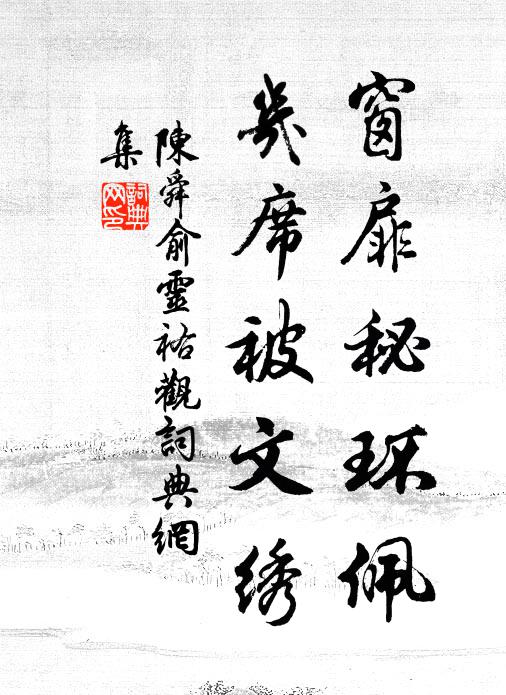 窗扉秘环佩
幾席被文绣
陳舜俞靈祐觀詞典網
集
詞典
网印